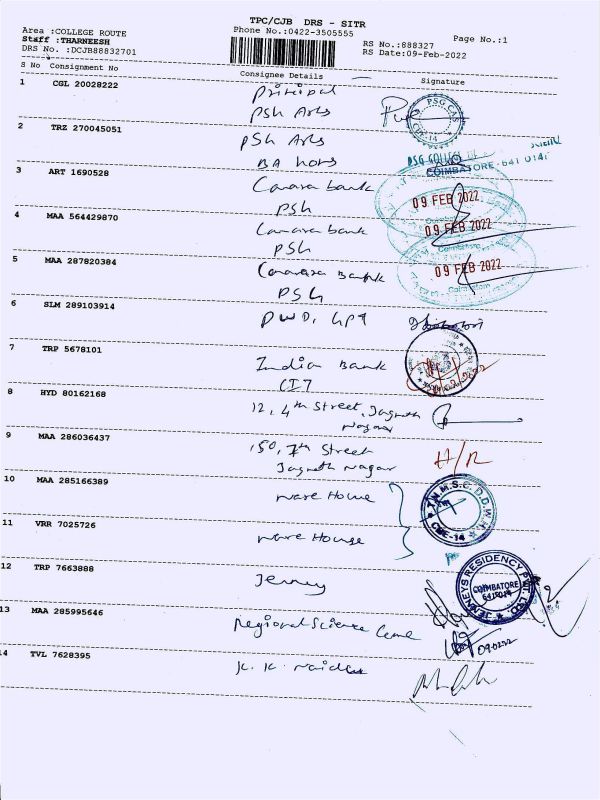 TPC/CJB DRS - SITR
Area :COLLEGE ROUTE
Phone No.:0422-3505555
Page No.:1
Staff :THARNEESH
RS No.:888327
DRS No. :DCJB88832701
RS Date:09-Feb-2022
S No Consignment No Consignee Details Signature
1 CGL 20028222 Principal
PSG Arts
PSG CAS
CBE-14
2 TRZ 270045051 PSG Arts
BA hons
PSG COLLEGE
COIMBATORE - 641 014
3 ART 1690528 Canara bank
PSG
09 FEB 2022
4 MAA 564429870 Canara bank
PSG
09 FEB 2022
Coimbatore
5 MAA 287820384 Canara Bank
PSG
09 FEB 2022
Coimbatore
6 SLM 289103914 PWD, GPT
7 TRP 5678101 Indian Bank
CIT
8 HYD 80162168 12, 4th Street, Jagnath
Nagar
9 MAA 286036437 150, 7th Street
Jagnath Nagar
H/R
10 MAA 285166389 Ware House
T.N.M.S.C. D.D.W.H.
CBE-14
11 VRR 7025726 Ware House
12 TRP 7663888 Jenney
JENNEYS RESIDENCY PVT LTD.
COIMBATORE
641 014
13 MAA 285995646 Regional Science Centre
14 TVL 7628395 K. K. Naidu